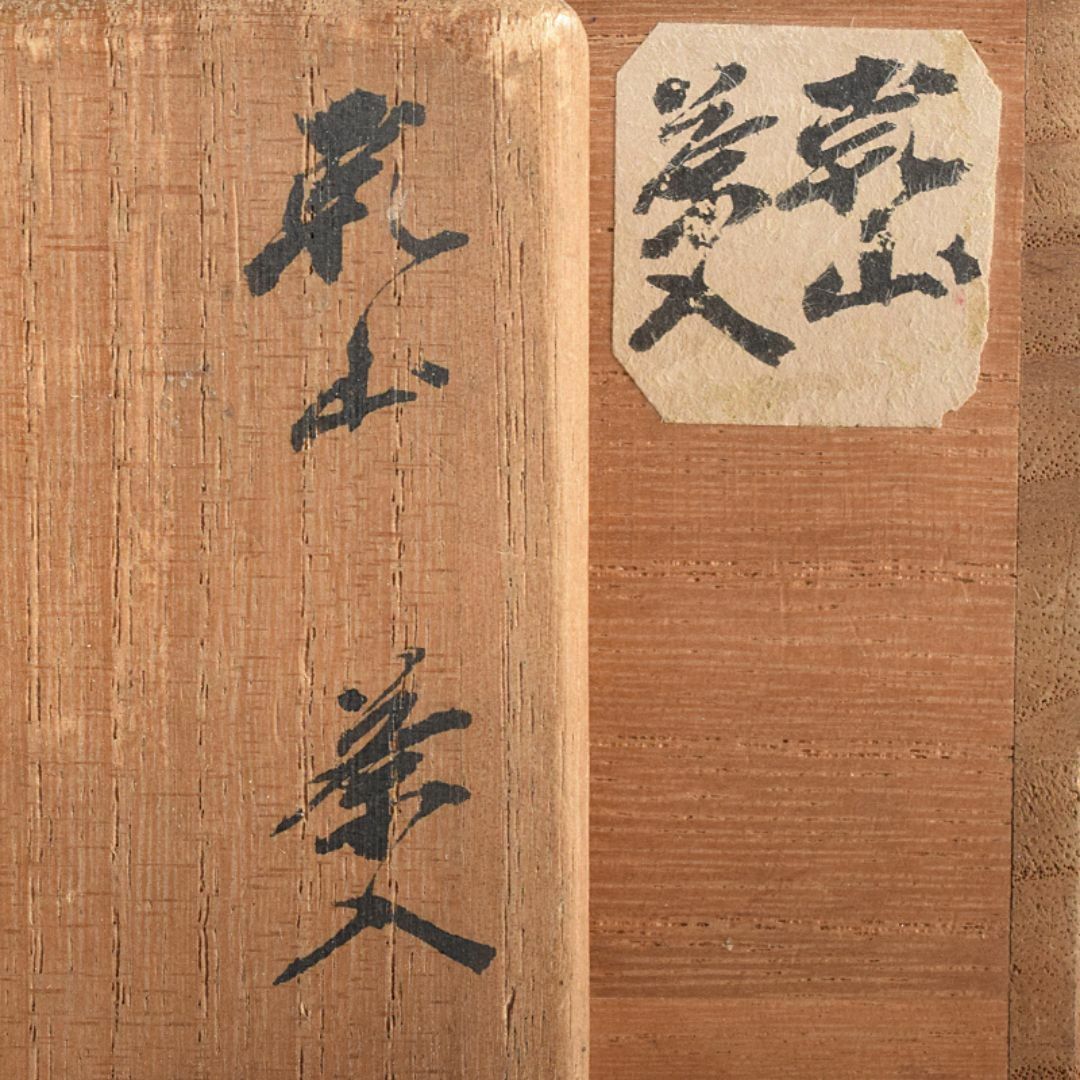 乾山
茶入
乾山
茶入